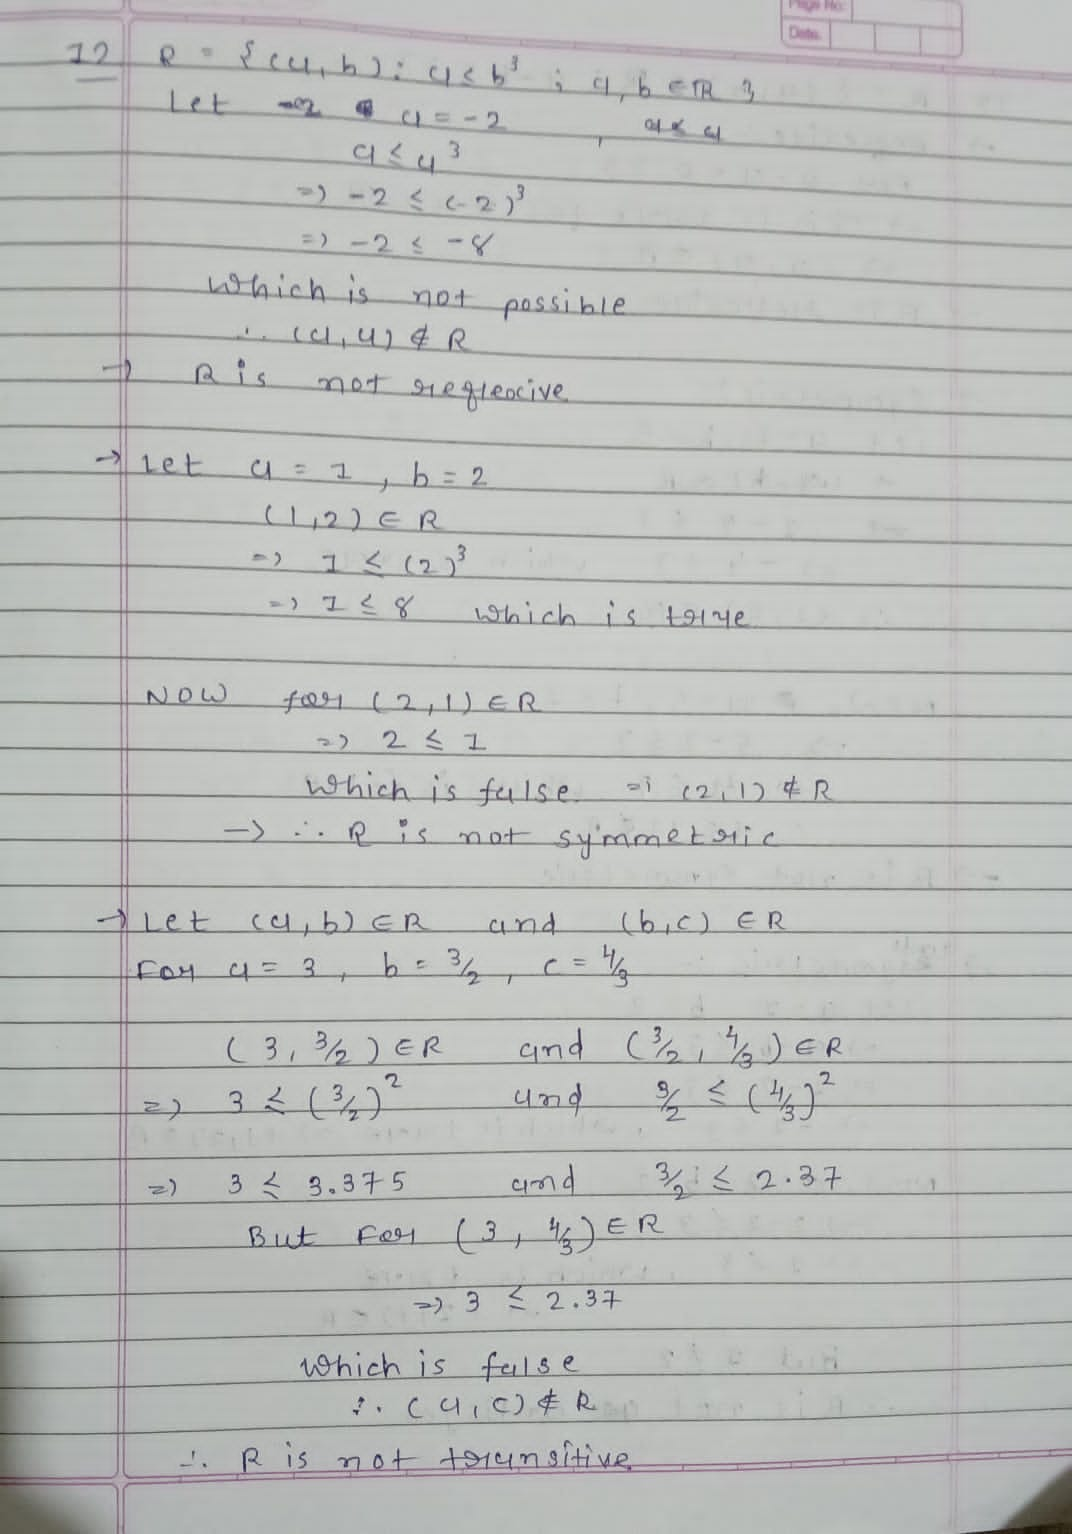 Page No:
Date:
12 R = {(a,b): a ≤ b³ ; a, b ∈ R}
Let a = -2 ,
a ≤ a³
=> -2 ≤ (-2)³
=> -2 ≤ -8
Which is not possible
∴ (a,a) ∉ R
→ R is not reflexive
→ Let a = 1, b = 2
(1,2) ∈ R
=> 1 ≤ (2)³
=> 1 ≤ 8 which is true
NOW for (2,1) ∈ R
=> 2 ≤ 1
Which is false. => (2,1) ∉ R
→ ∴ R is not symmetric
→ Let (a,b) ∈ R and (b,c) ∈ R
For a = 3, b = 3/2, c = 4/3
(3, 3/2) ∈ R and (3/2, 4/3) ∈ R
=> 3 ≤ (3/2)² and 3/2 ≤ (4/3)²
=> 3 ≤ 3.375 and 3/2 ≤ 2.37
But For (3, 4/3) ∈ R
=> 3 ≤ 2.37
Which is false
∴ (a,c) ∉ R
∴ R is not transitive